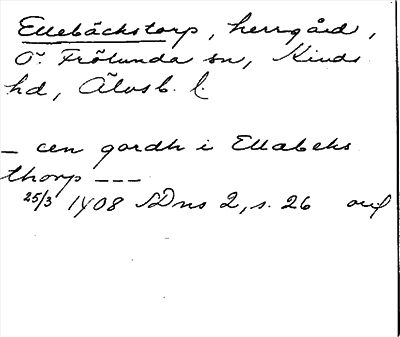 Ellebäckstorp, herrgård,
Ö. Frölunda sn, Kinds
hd, Älvsb. l.
– cen gardh i Ellabeks
thorp ---
25/3 1408 SDns 2, s. 26 avs